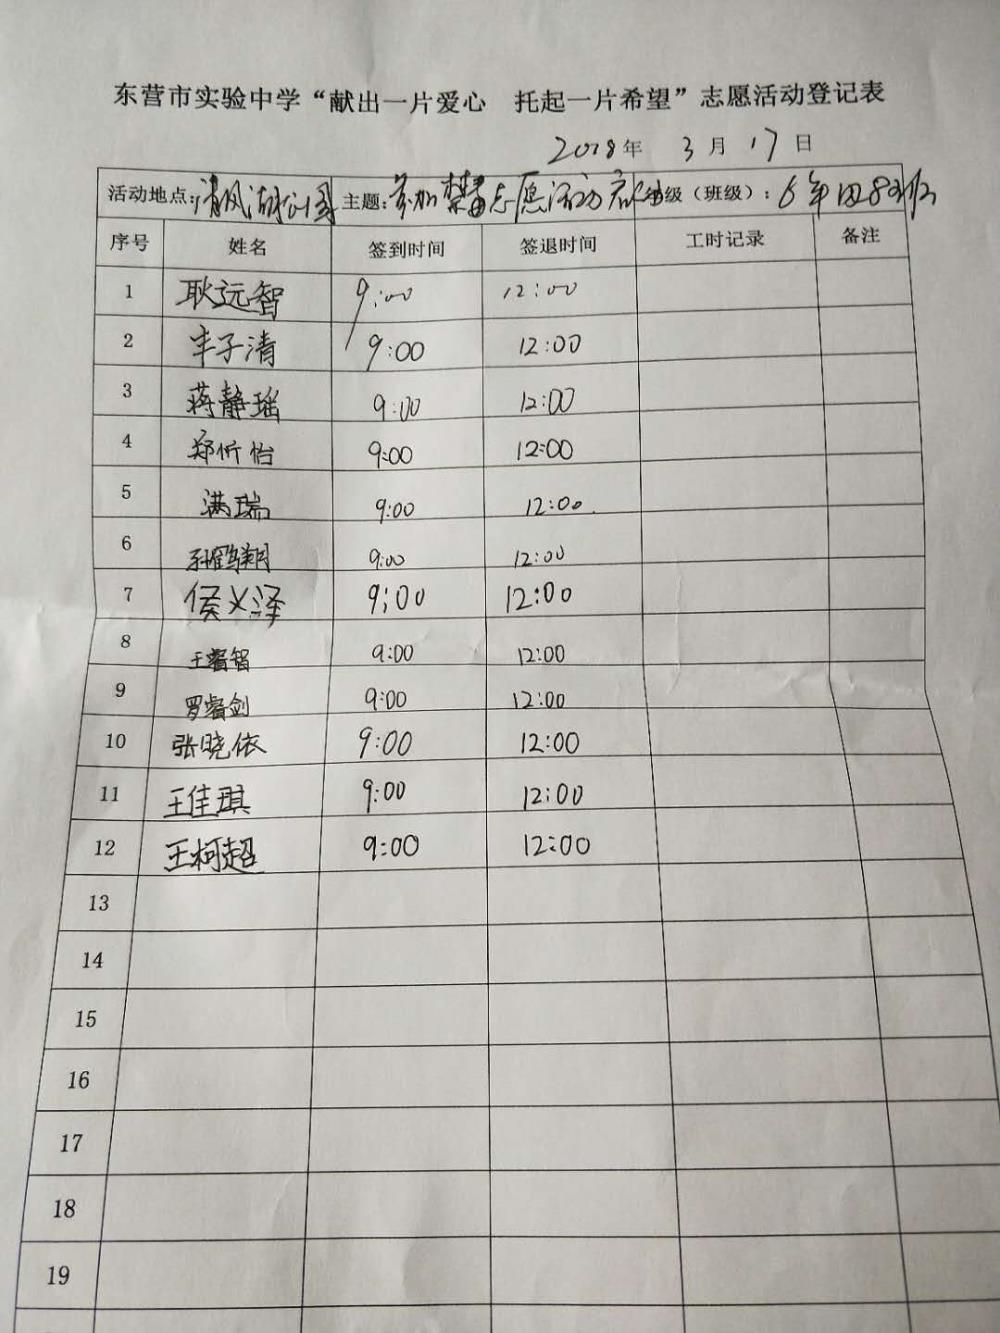 东营市实验中学“献出一片爱心 托起一片希望”志愿活动登记表
2018年 3月 17日
活动地点:清风湖公园 主题:参加禁毒志愿活动 级(班级):6年 8班
序号 姓名 签到时间 签退时间 工时记录 备注
1 耿远智 9:00 12:00
2 丰子清 9:00 12:00
3 蒋静瑶 9:00 12:00
4 郑忻怡 9:00 12:00
5 满瑞 9:00 12:00
6 孙鹤翔 9:00 12:00
7 侯义泽 9:00 12:00
8 王睿智 9:00 12:00
9 罗睿剑 9:00 12:00
10 张晓依 9:00 12:00
11 王佳琪 9:00 12:00
12 王柯超 9:00 12:00
13
14
15
16
17
18
19